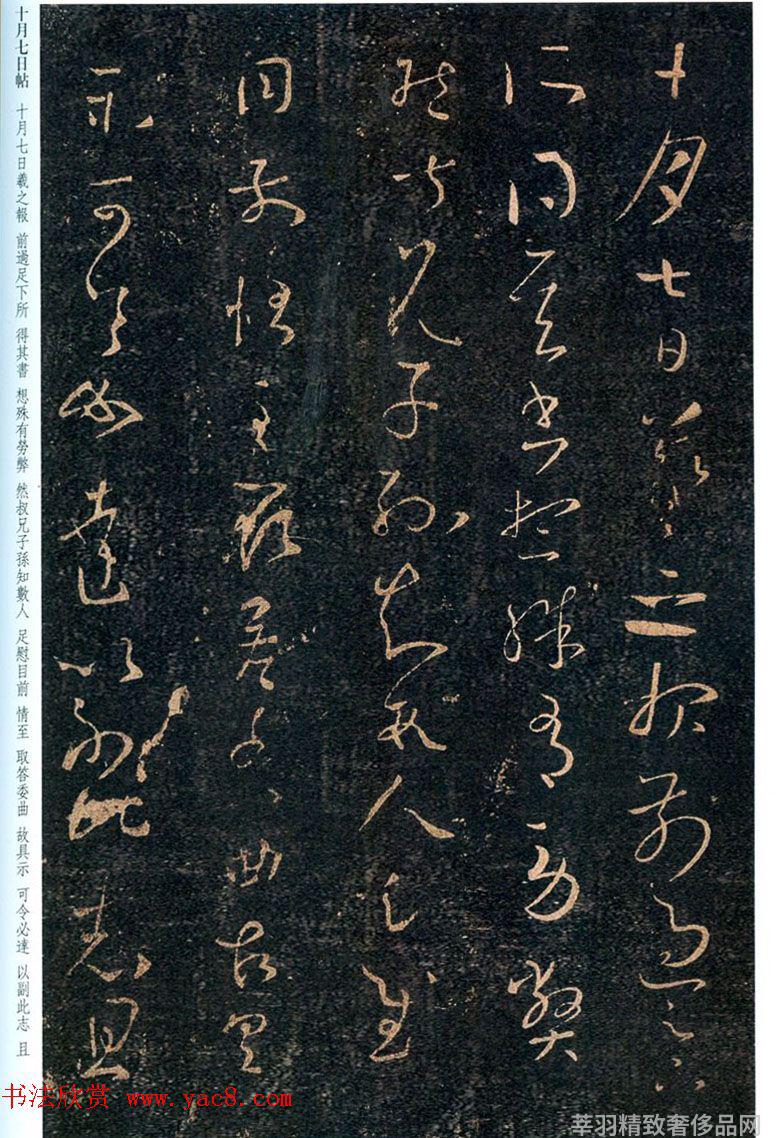 十月七日羲之報前過足下
所得其書想殊有勞弊
然叔兄子孫知數人足慰
目前情至取答委曲故具
示可令必達以副此志且
十月七日帖 十月七日羲之報 前過足下所 得其書 想殊有勞弊 然叔兄子孫知數人 足慰目前 情至 取答委曲 故具示 可令必達 以副此志 且
书法欣赏 www.yac8.com
莘羽精致奢侈品网